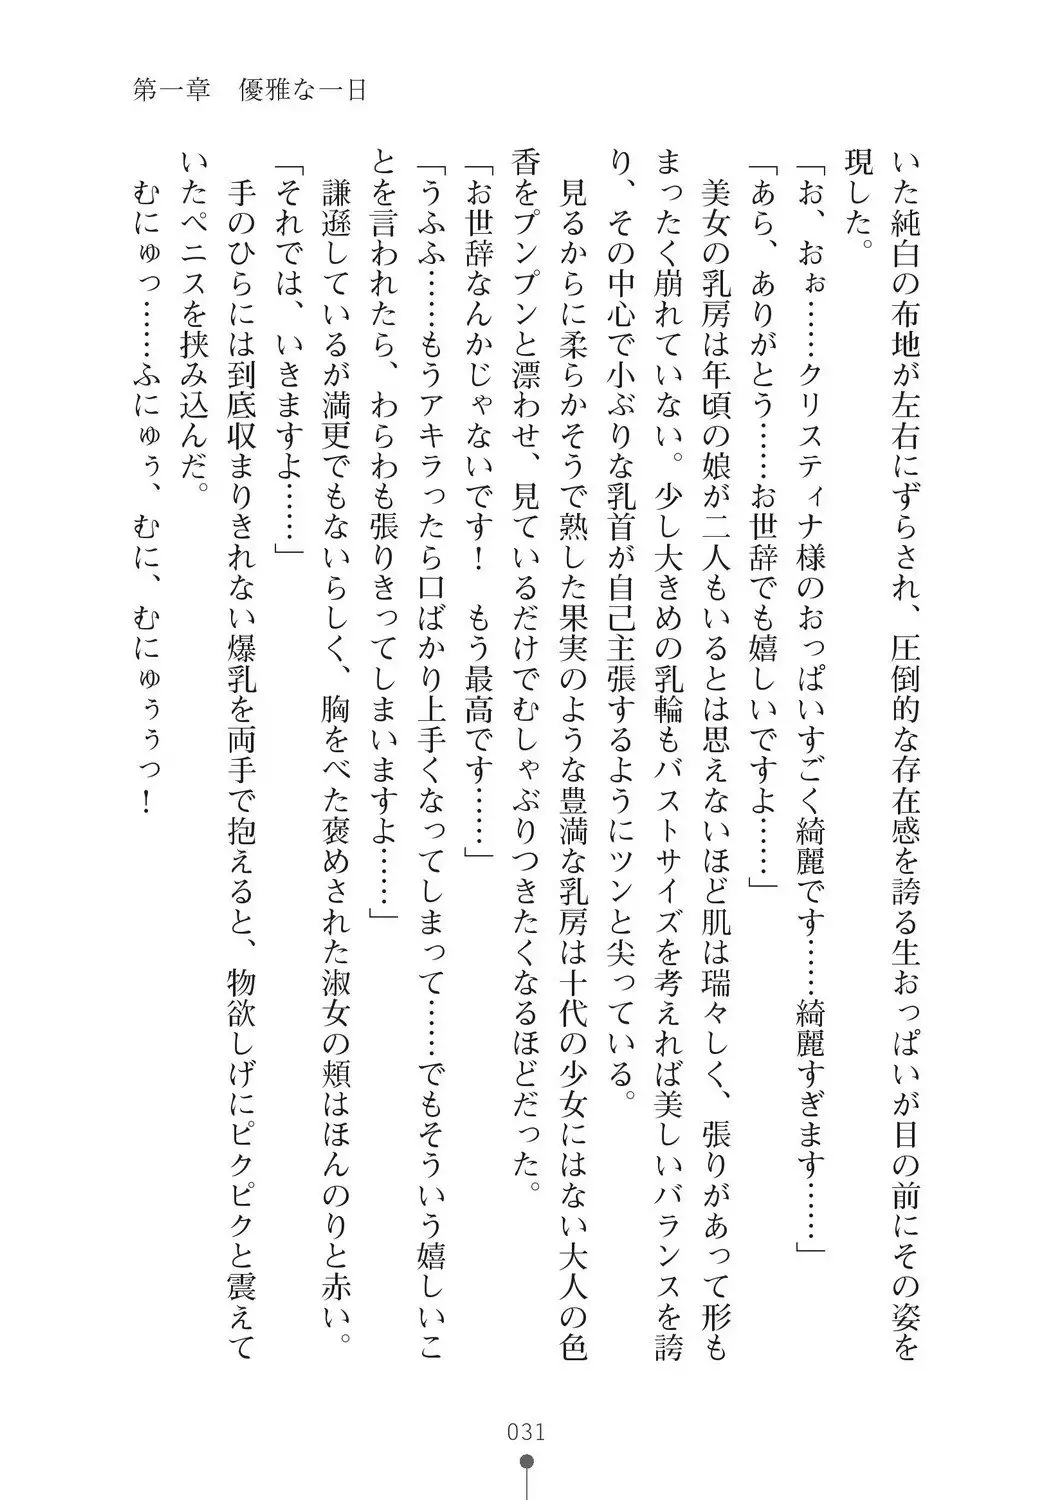 第一章 優雅な一日
いた純白の布地が左右にずらされ、圧倒的な存在感を誇る生おっぱいが目の前にその姿を
現した。
「お、おぉ……クリスティナ様のおっぱいすごく綺麗です……綺麗すぎます……」
「あら、ありがとう……お世辞でも嬉しいですよ……」
美女の乳房は年頃の娘が二人もいるとは思えないほど肌は瑞々しく、張りがあって形も
まったく崩れていない。少し大きめの乳輪もバストサイズを考えれば美しいバランスを誇
り、その中心で小ぶりな乳首が自己主張するようにツンと尖っている。
見るからに柔らかそうで熟した果実のような豊満な乳房は十代の少女にはない大人の色
香をプンプンと漂わせ、見ているだけでむしゃぶりつきたくなるほどだった。
「お世辞なんかじゃないです！ もう最高です……」
「うふふ……もうアキラったら口ばかり上手くなってしまって……でもそういう嬉しいこ
とを言われたら、わらわも張りきってしまいますよ……」
謙遜しているが満更でもないらしく、胸をべた褒めされた淑女の頬はほんのりと赤い。
「それでは、いきますよ……」
手のひらには到底収まりきれない爆乳を両手で抱えると、物欲しげにピクピクと震えて
いたペニスを挟み込んだ。
むにゅっ……ふにゅぅ、むに、むにゅぅぅっ！
031